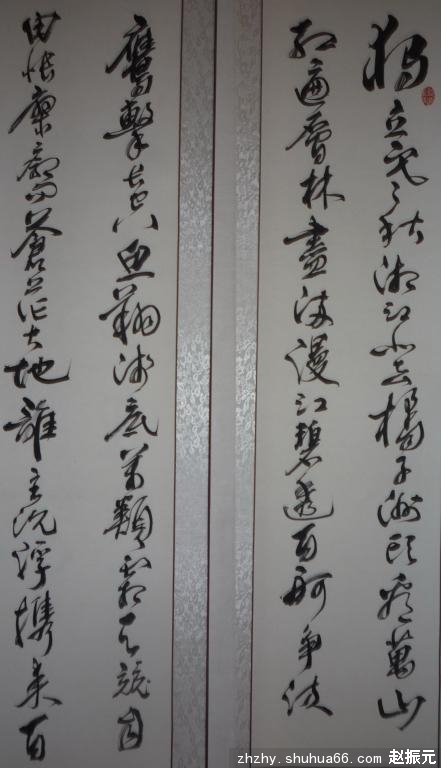 独立寒秋湘江北去橘子洲头看萬山
红遍層林盡染漫江碧透百舸争流
鷹擊长空鱼翔浅底萬類霜天競自
由怅寥廓问蒼茫大地誰主沉浮携来百
zhzhy.shuhua66.com 赵振元